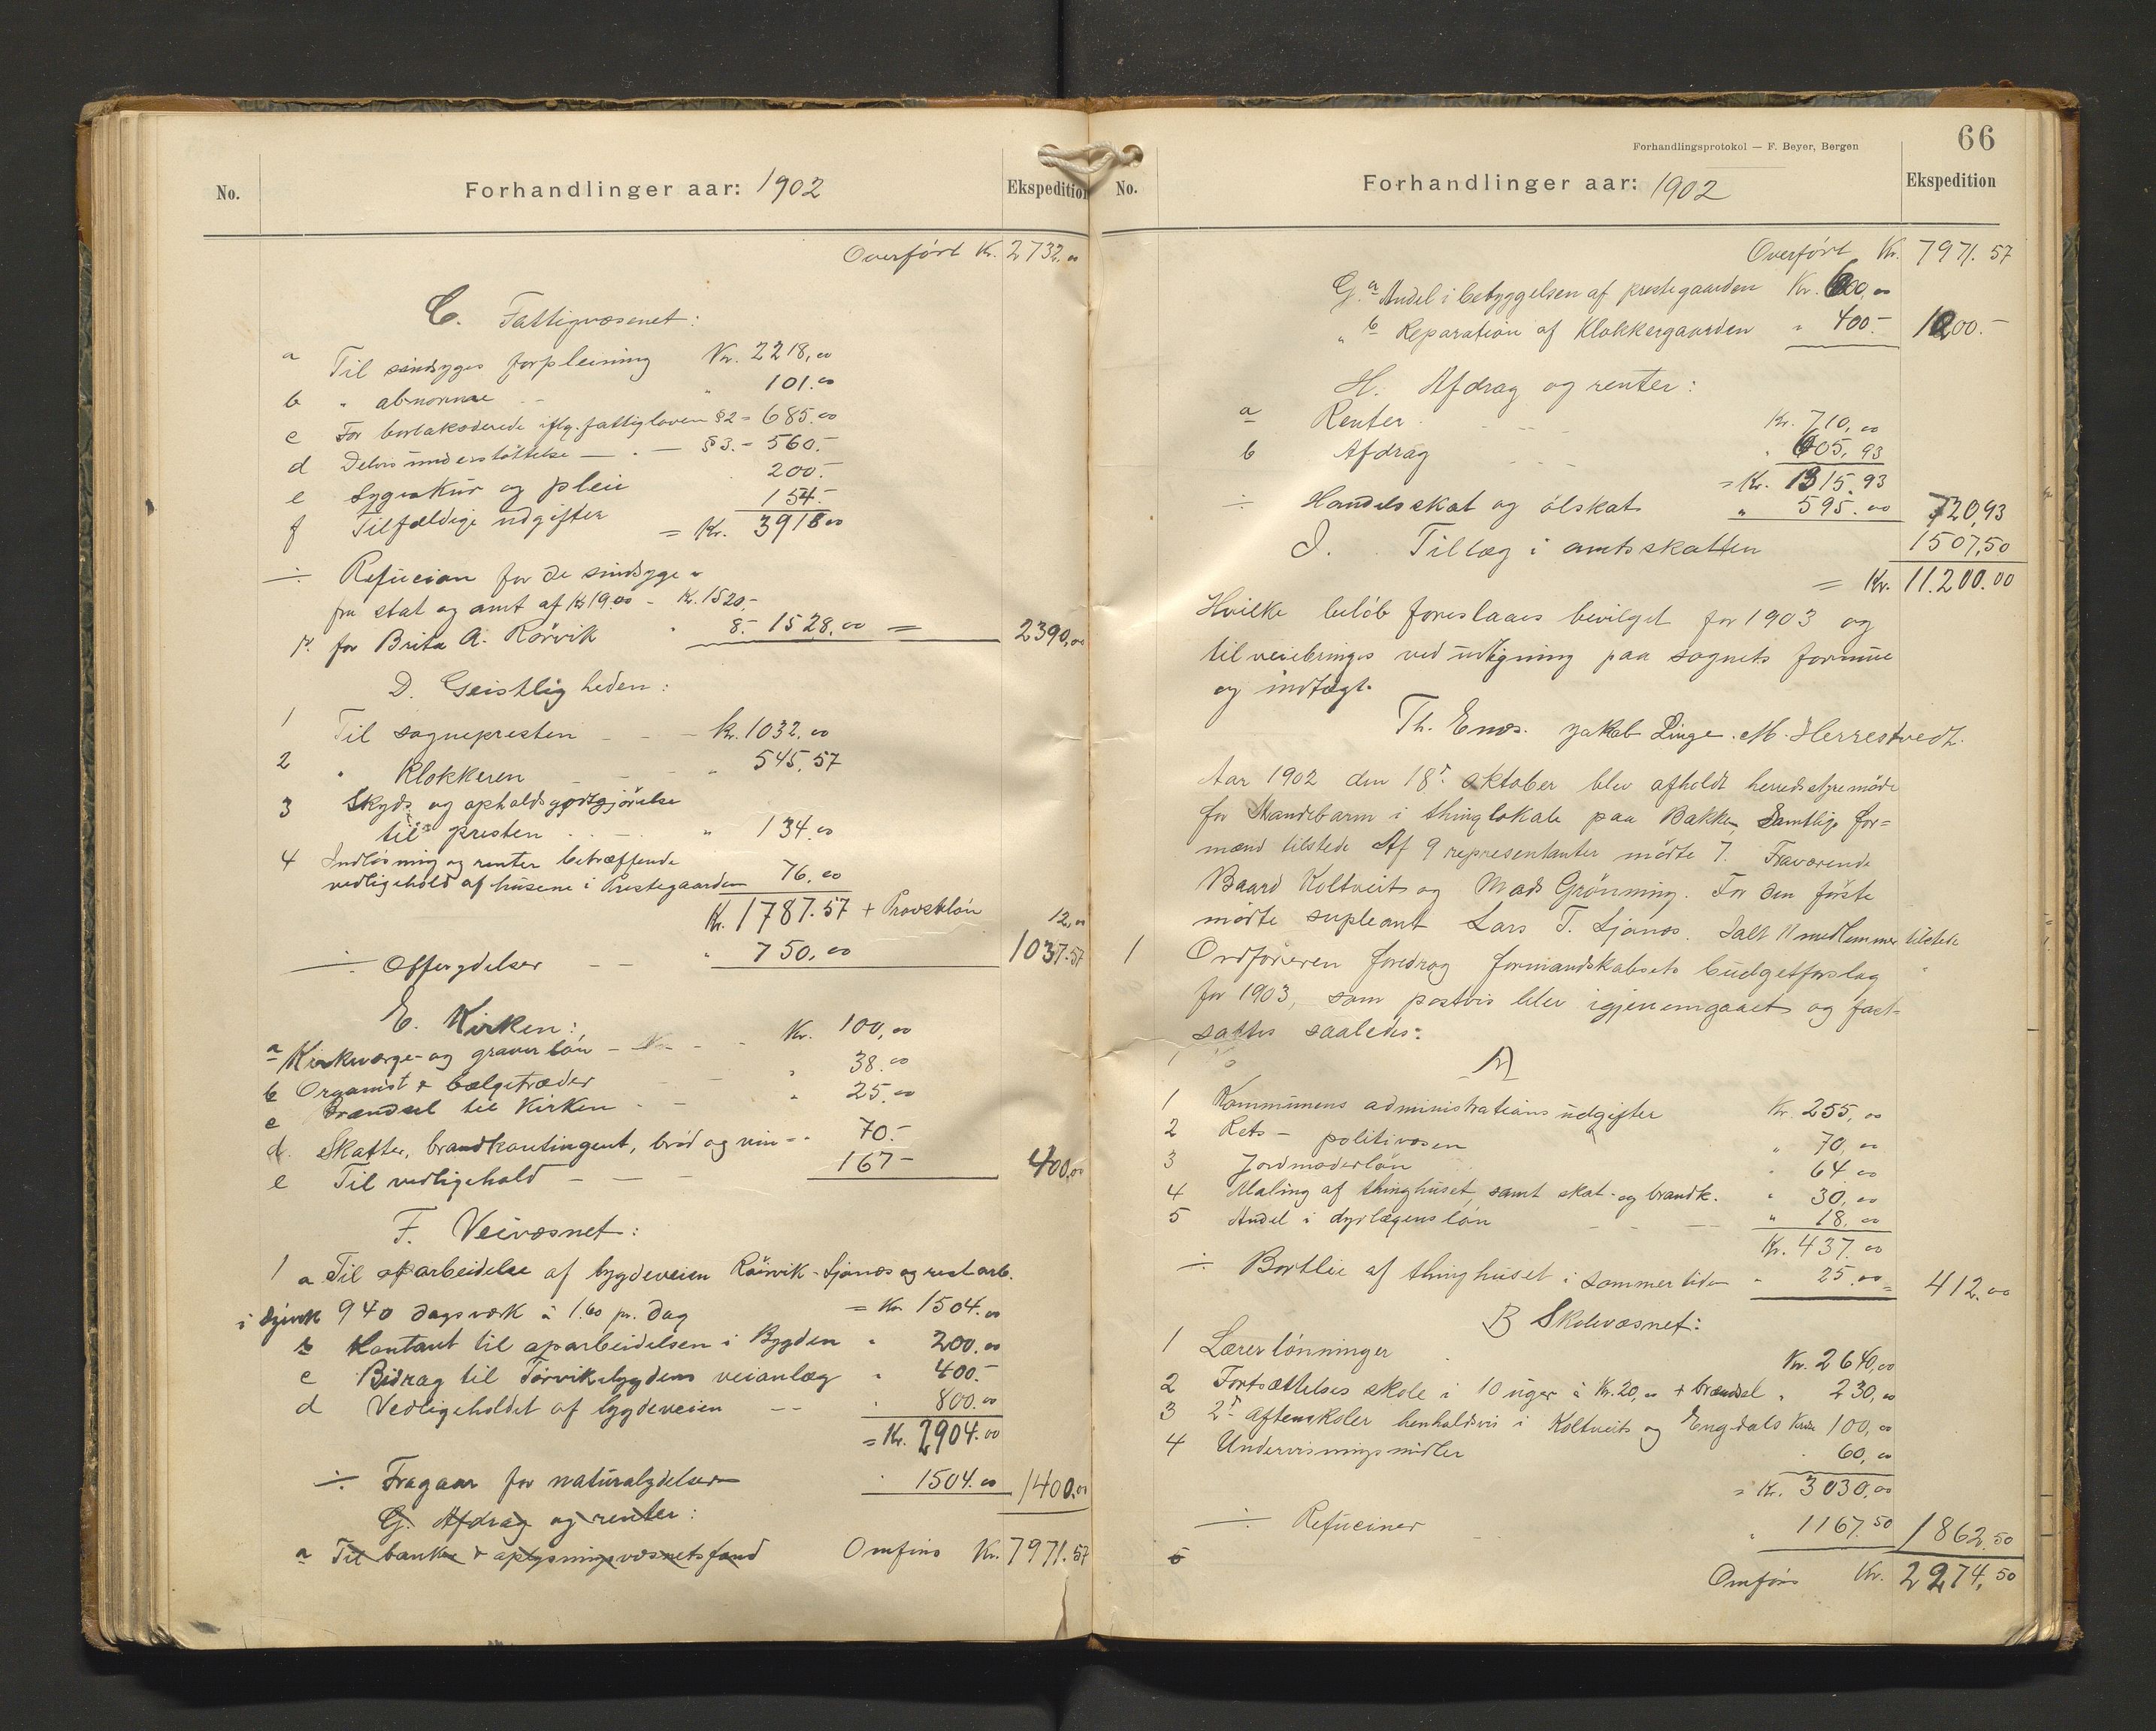 No.
Forhandlinger aar: 1902
Ekspedition
Overført Kr. 2732.00
C. Fattigvæsenet:
a Til sindsyges forpleining Kr. 2218,00
b " abnorme - - " 101.00
c For bortakorderede iflg. fattigloven §2 - 685.00
d Delvis understøttelse — " — §3. - 560.-
e Sygekur og pleie 200.-
f Tilfældige udgifter 154.-
= Kr. 3918.00
÷ Refucion for de sindsyge
fra stat og amt af Kr 19.00 - Kr. 1520,-
for Brita A. Rørvik " 8.- 1528,00 = 2390,00
D. Geistligheden:
1 Til sognepresten - - - kr. 1032.00
2 " Klokkeren - - - " 545,57
3 Skyds og opholdsgodtgjørelse
til presten - - " 134.00
4 Indløsning og renter betræffende
vedligehold af husene i Prestegaarden 76,00
Kr. 1787.57 + Provstløn 12,00
÷ Offerydelser - - " 750,00 1037.57
E. Kirken:
a Kirkeværge- og graverløn - - - Kr. 100,00
b Organist & bælgetræder - - " 38.00
c Brændsel til Kirken - - " 25.00
d. Skatter, brandkontingent, brød og vin - - 70.-
e Til vedligehold - - - 167- 400,00
F. Veivæsnet:
1 a Til oparbeidelse af bygdeveien Rørvik - Ljonæs og rest arb.
940 dagsværk à 1.60 pr. dag = Kr 1504.00
b Kontant til oparbeidelsen i Bygden " 200.00
c Bidrag til Torviksbygdens veianlæg " 400.-
d Vedligeholdet af bygdeveien - - " 800.00
= Kr. 2904.00
÷ Fragaar for naturalydelser " 1504.00 1400.00
G. Afdrag og renter:
a Til banker & oplysningsvæsnets fond Omføres Kr. 7971.57
66
Forhandlingsprotokol — F. Beyer, Bergen
No.
Forhandlinger aar: 1902
Ekspedition
Overført Kr. 7971.57
G. a Andel i bebyggelsen af prestegaarden Kr. 600,00
" b Reparation af Klokkergaarden " 400.- 1000.-
H. Afdrag og renter:
a Renter - - - Kr. 710,00
b Afdrag - - - " 605,93
= Kr. 1315.93
÷ Handelsskat og ølskat " 595.00 720,93
I. Tillæg i amtsskatten 1507,50
= Kr. 11.200.00
Hvilke beløb foreslaaes bevilget for 1903 og
tilveiebringes ved udligning paa sognets formue
og indtægt.
Th. Enæs. Jakob Linge. M. Herrestvedt.
Aar 1902 den 18de oktober blev afholdt herredsstyremøde
for Strandebarm i thinglokale paa Bakke, Samtlige for=
mænd tilstede Af 9 representanter mødte 7. Fraværende
Baard Koltveit og Mads Grønning. For den første
mødte supleant Lars T. Ljonæs. Ialt 11 medlemmer tilstede
1 Ordføreren foredrog formandskabets budgetforslag
for 1903, som postvis blev igjennemgaaet og fast-
sattes saaledes:
A
1 Kommunens administrations udgifter Kr. 255,00
2 Rets - politivæsen " 70,00
3 Jordmoderløn " 64.00
4 Maling af thinghuset, samt skat- og brandk. " 30,00
5 Andel i dyrlægens løn - - - " 18.00
Kr. 437.00
÷ Bortleie af thinghuset i sommertiden " 25.00 = 412.00
B Skolevæsnet:
1 Lærerlønninger Kr. 2640,00
2 Fortsættelses skole i 10 uger à Kr. 20,00 + brændsel " 230,00
3 2de aftenskoler henholdsvis i Koltveits og Engdals Kreds 100,00
4 Undervisningsmidler " 60,00
= Kr. 3030.00
÷ Refucioner " 1167.50 1862.50
5
Omføres Kr. 2274,50